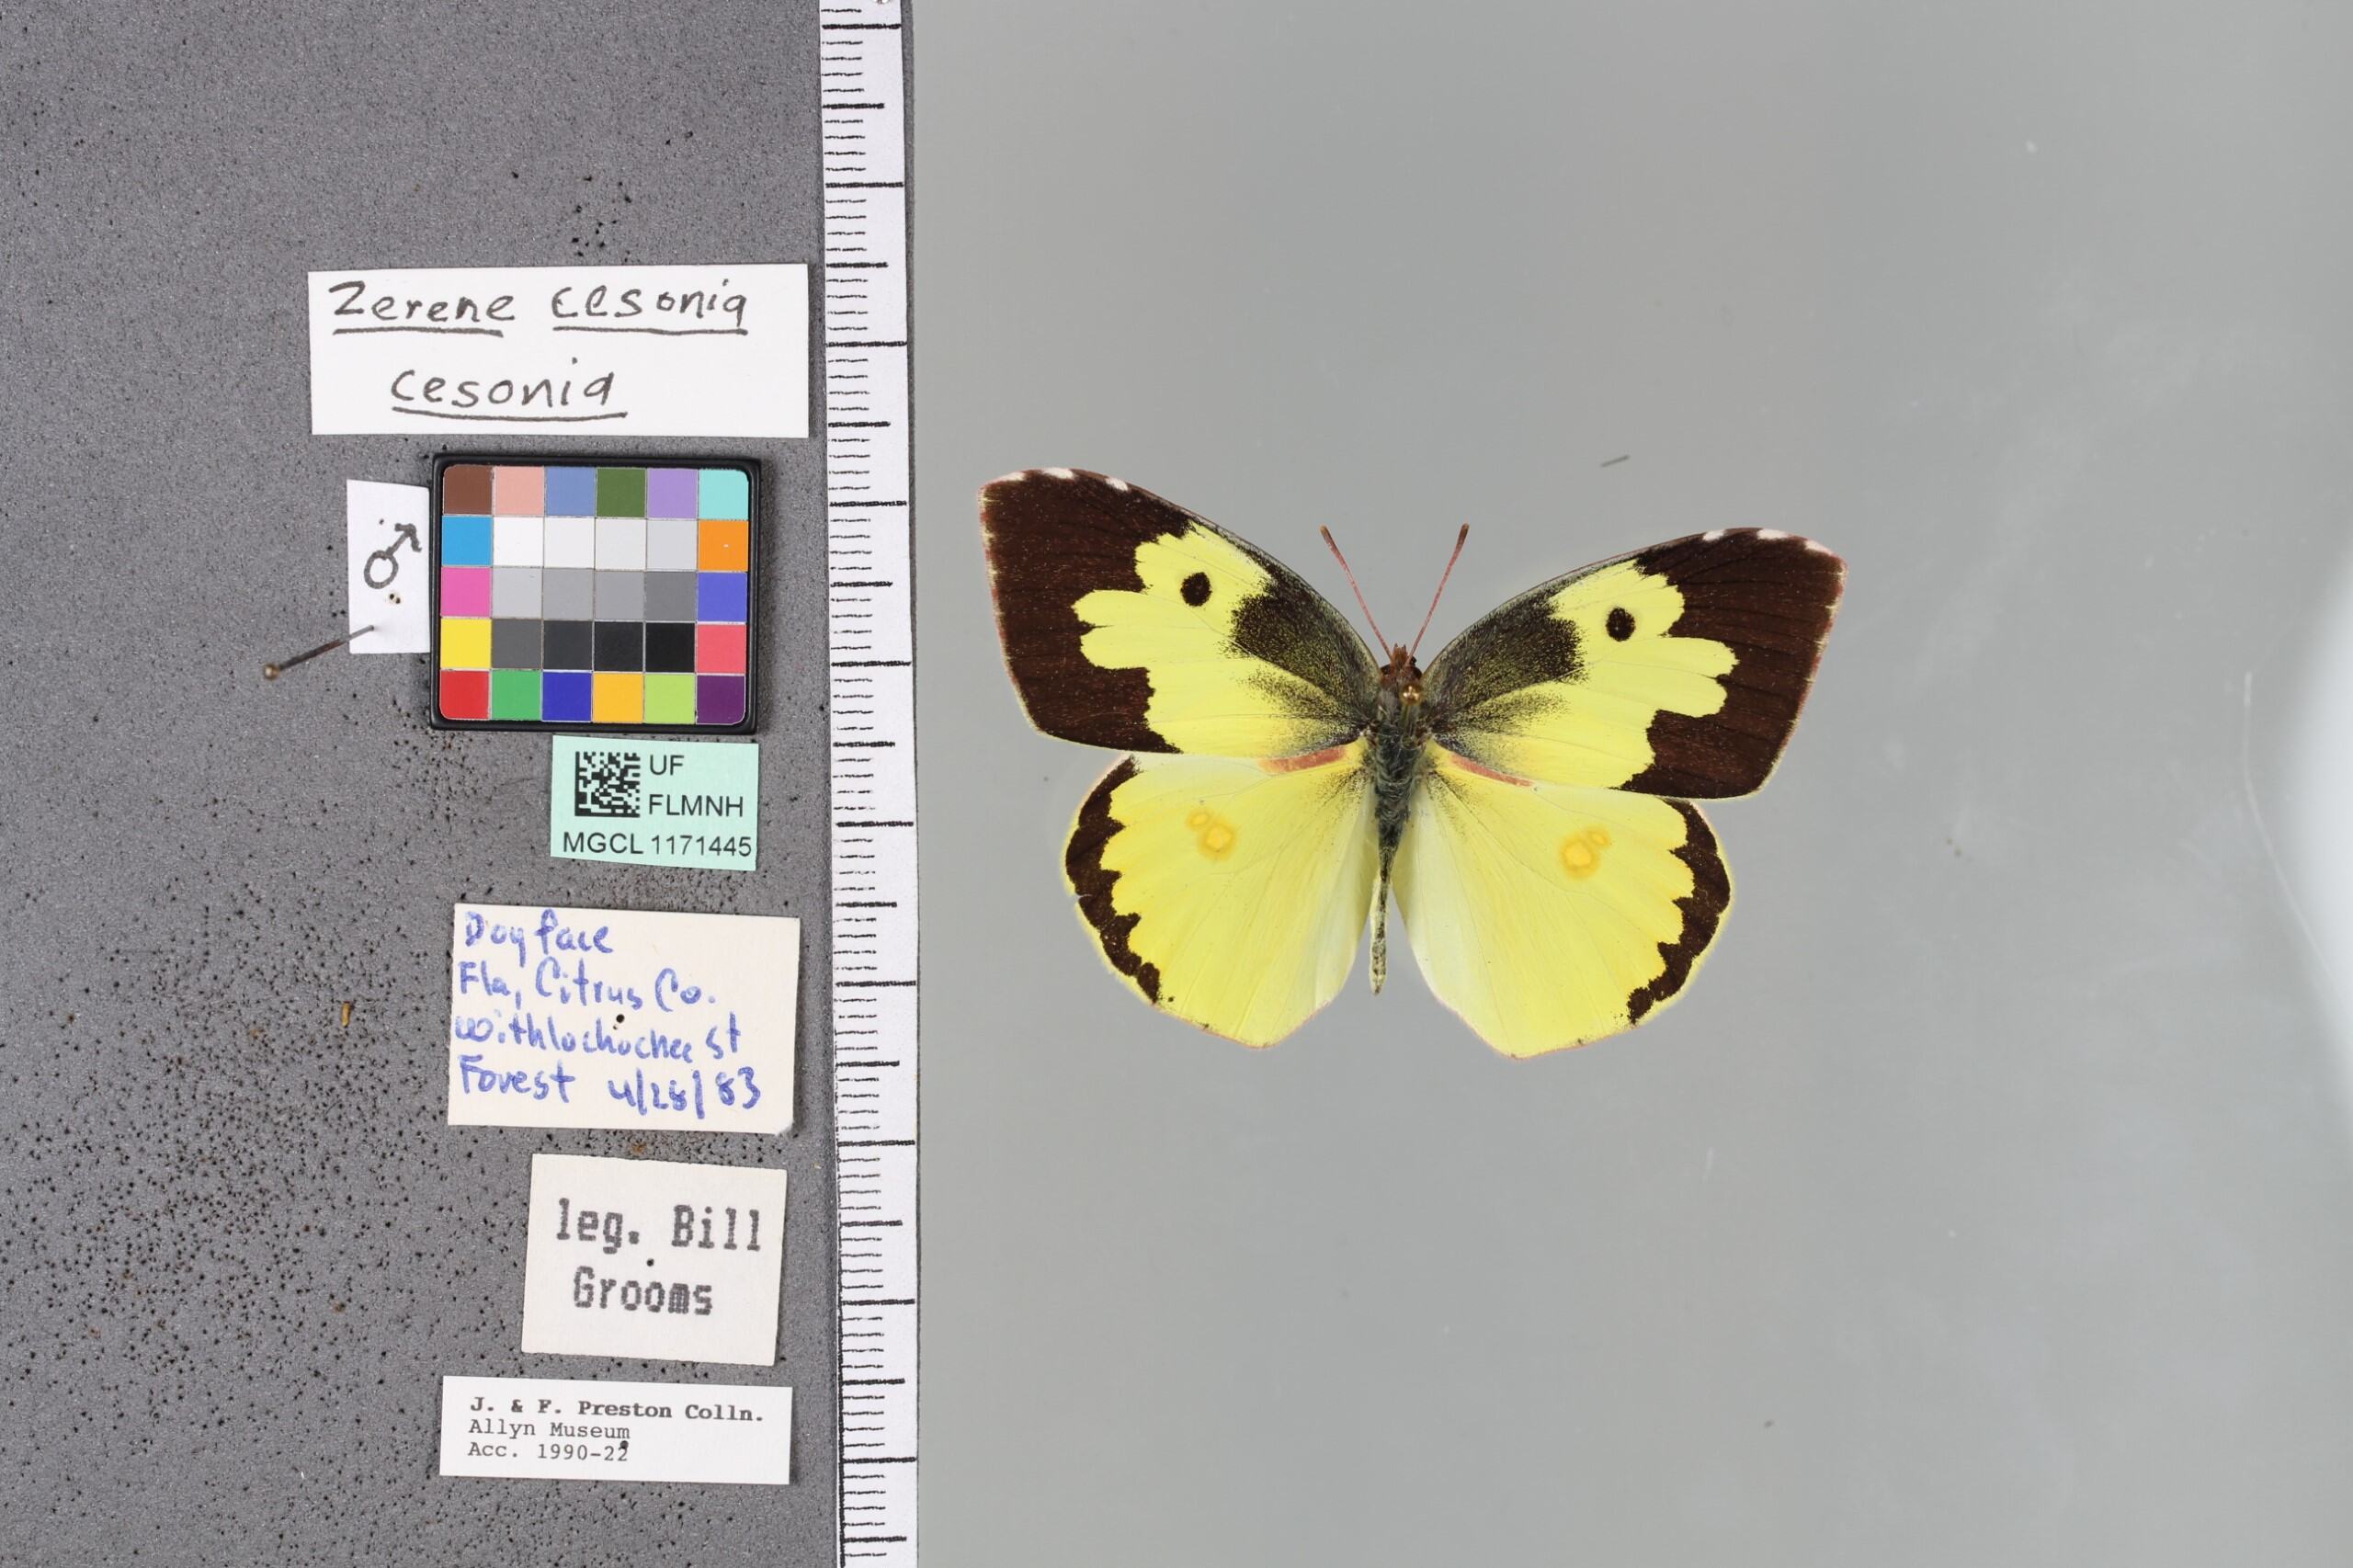 Zerene cesonia
cesonia
♂
UF
FLMNH
MGCL 1171445
Dogface
Fla, Citrus Co.
Withlochochee St
Forest 4/28/83
leg. Bill
Grooms
J. & F. Preston Colln.
Allyn Museum
Acc. 1990-22